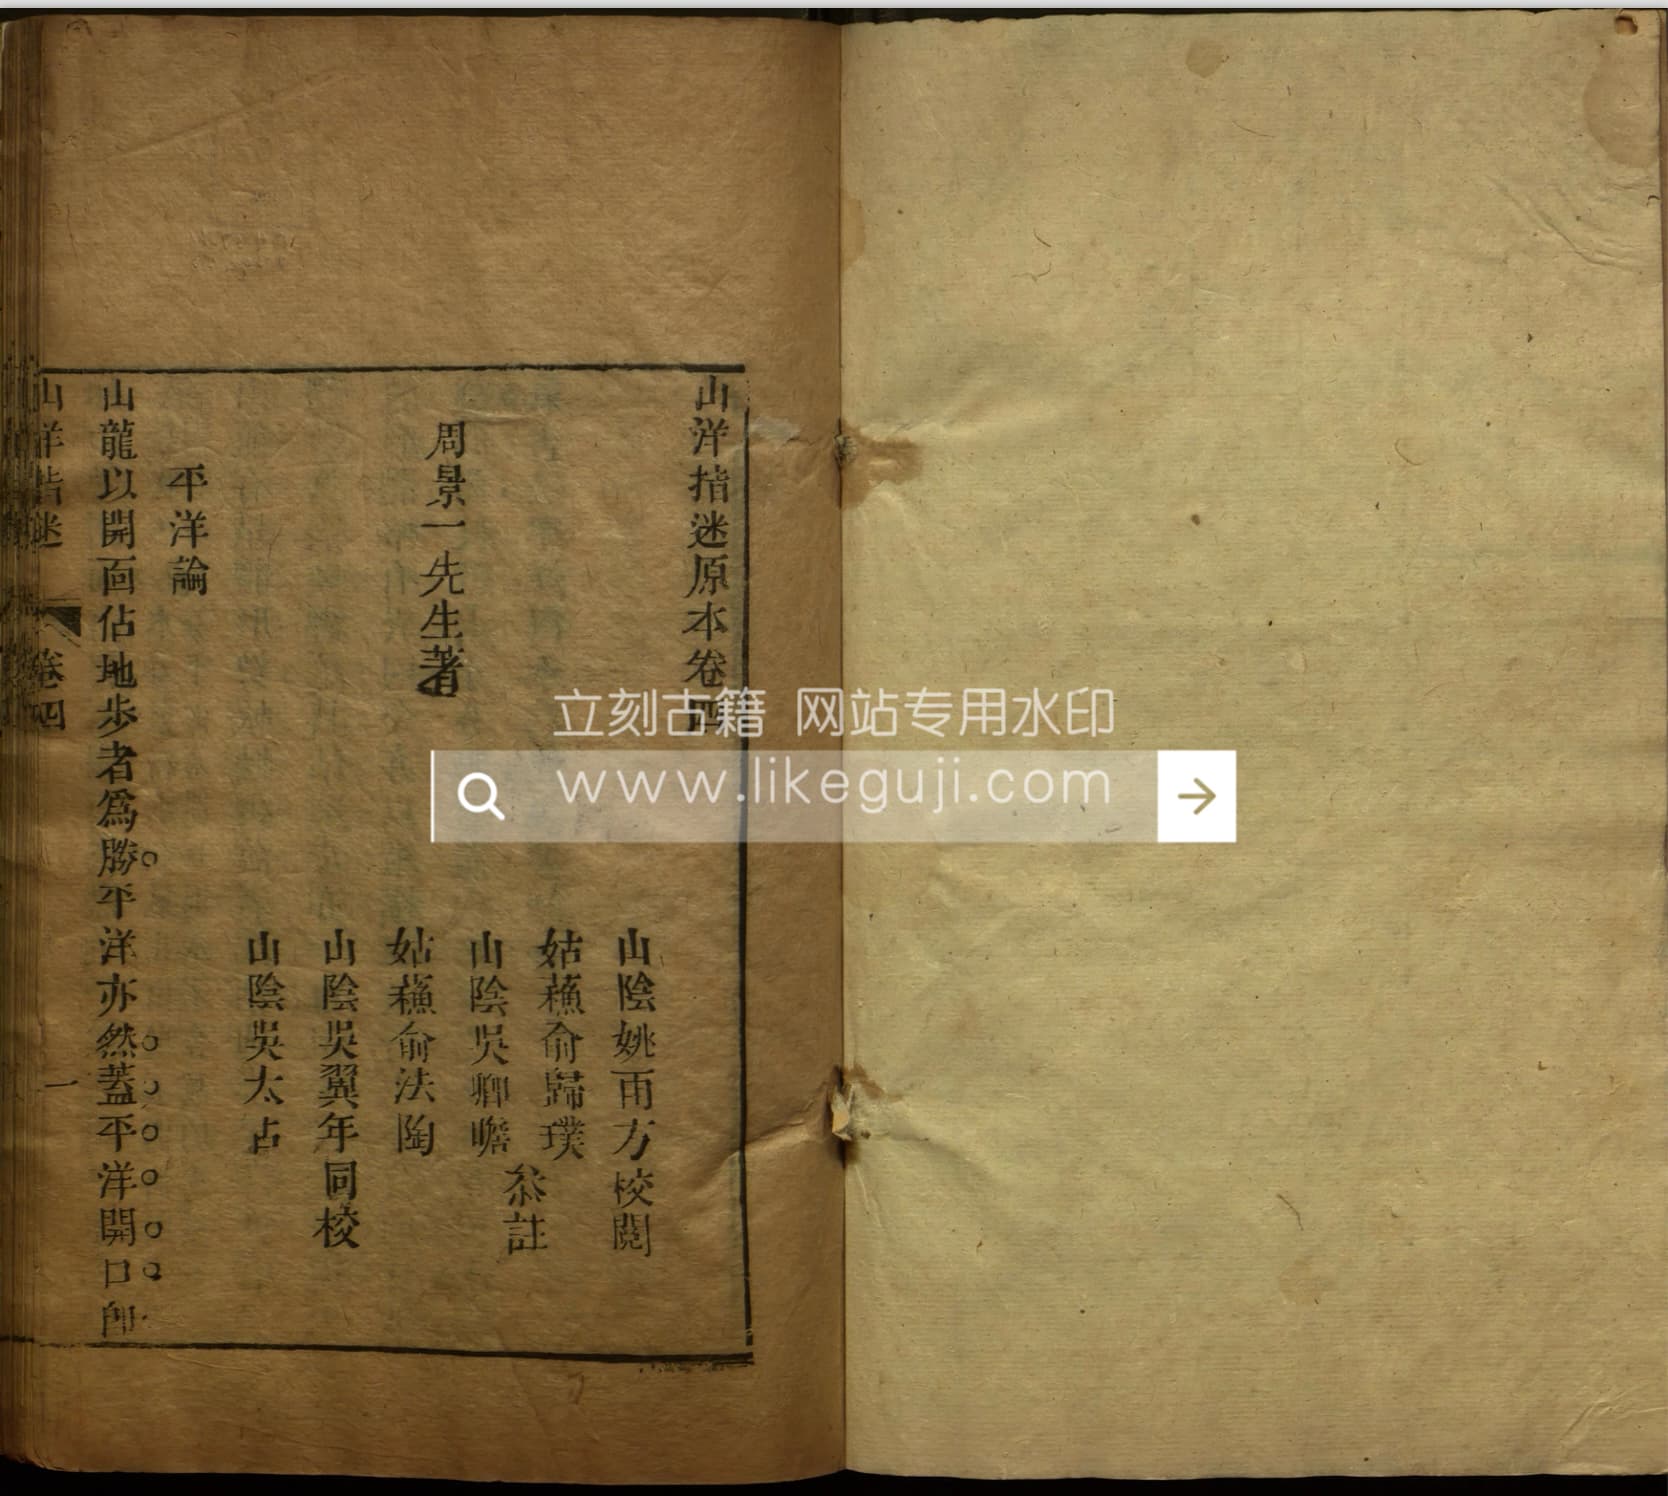 山洋指迷原本卷四
山陰姚雨方校閱
姑蘓俞歸璞
山陰吳卿瞻
叅註
周景一先生著
姑蘓俞法陶
山陰吳翼年同校
山陰吳太占
平洋論
山龍以開面佔地步者爲勝平洋亦然蓋平洋開口卽
山洋指迷
卷四
一
立刻古籍 网站专用水印
www.likeguji.com